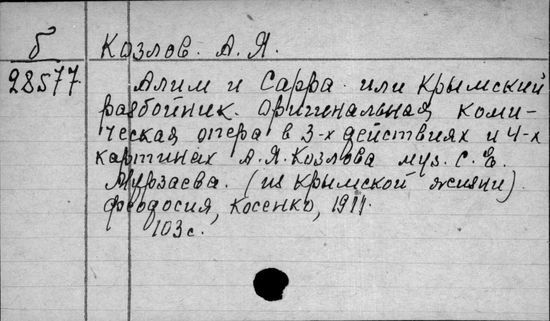 б Козлов. А. Я.
28577 Алим и Сарра или Крымский
разбойник. Оригинальная коми-
ческая опера в 3-х действиях и 4-х
картинах А.Я.Козлова муз. С. Е.
Мурзаева. (из крымской жизни).
Феодосия, Косенко, 1911.
103с.